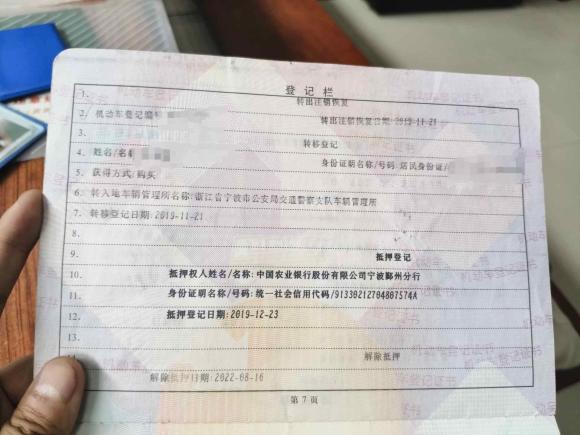 登记栏
1. 转出注销恢复
2. 机动车登记编号 转出注销恢复日期:2019-11-21
3. 转移登记
4. 姓名/名称 身份证明名称/号码:居民身份证/
5. 获得方式:购买
6. 转入地车辆管理所名称:浙江省宁波市公安局交通警察支队车辆管理所
7. 转移登记日期:2019-11-21
8.
9. 抵押登记
10. 抵押权人姓名/名称:中国农业银行股份有限公司宁波鄞州分行
11. 身份证明名称/号码:统一社会信用代码/91330212704807574A
12. 抵押登记日期:2019-12-23
13.
14. 解除抵押
解除抵押日期:2022-08-16
第 7 页